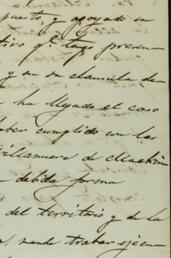 puesto, y apoyado en
tivo q.e tengo presen
y en su clausula de
ha llegado el caso
aber cumplido con las
villamera de
debida forma
del territorio y de la
mande trabar ejecu